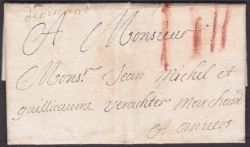 A Monsieur
Mons.r Jean Michel et
guilleaume verachter Marchand
A anvers